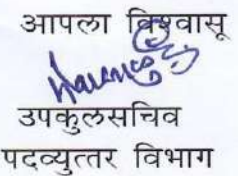 आपला विश्वासू
उपकुलसचिव
पदव्युत्तर विभाग